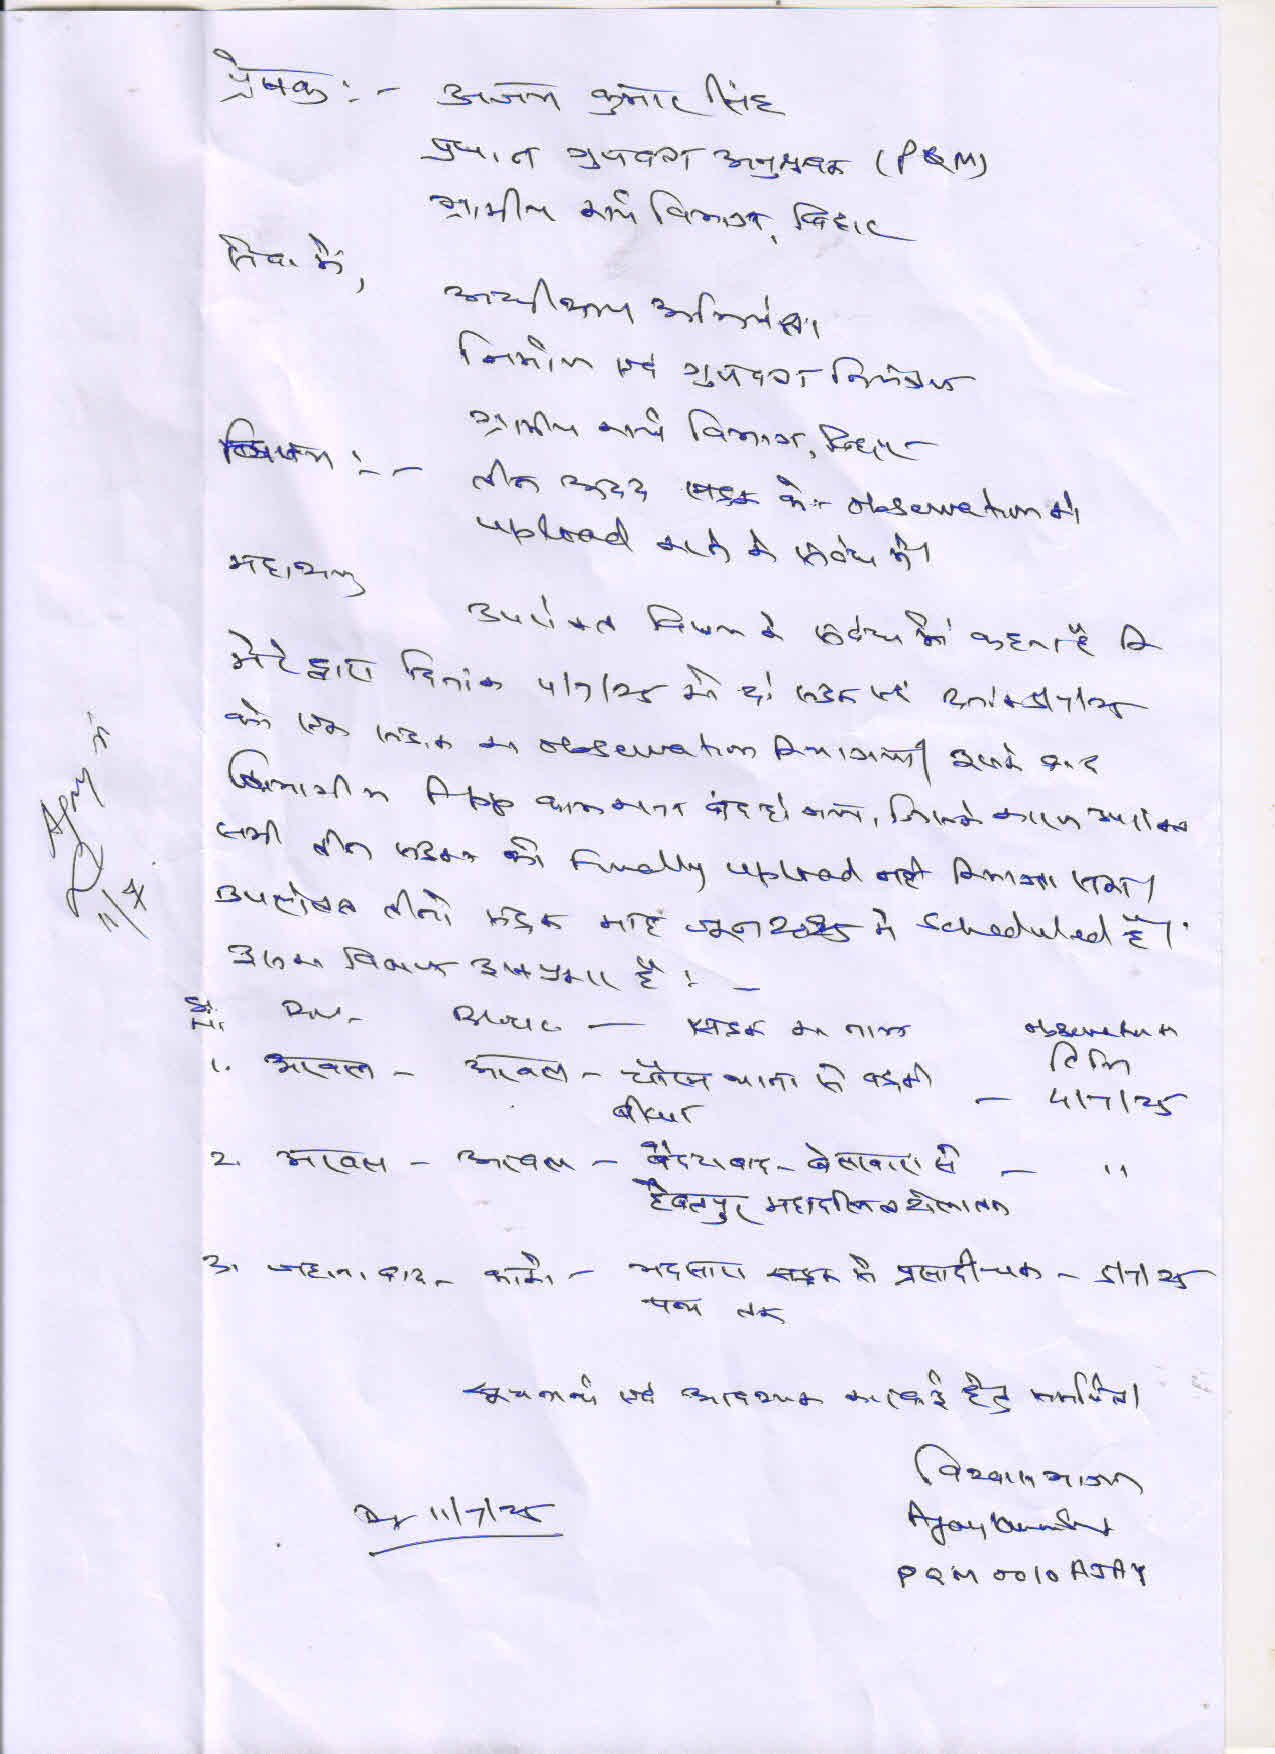 प्रेषक :- अजय कुमार सिंह
प्रधान गुणवत्ता अनुश्रवक (PQM)
ग्रामीण कार्य विभाग, बिहार
सेवा में,
अधीक्षण अभियंता
निर्माण एवं गुणवत्ता नियंत्रण
ग्रामीण कार्य विभाग, बिहार
विषय :- तीन अदद सड़क के observation को
upload करने के संबंध में।
महाशय,
उपरोक्त विषय के संबंध में कहना है कि
मेरे द्वारा दिनांक 4/7/25 को दो सड़क एवं दिनांक 5/7/25
को एक सड़क का observation किया गया। इसके बाद
विभागीय App काम करना बंद हो गया, जिसके कारण उपरोक्त
सभी तीन सड़क को Finally upload नहीं किया जा सका।
उपरोक्त तीनों सड़क माह जून 2025 में scheduled है।
इसका विवरण इस प्रकार है : -
क्र. सं. Div. Block — सड़क का नाम observation तिथि
1. अरवल - अरवल - थाना से
- 4/7/25
2. अरवल - अरवल - बैदराबाद - बेलखारा से — "
हैबतपुर महादलित टोला तक
3. जहानाबाद - काको - भदसारा सड़क से प्रसादी चक - 5/7/25
तक
सूचनार्थ एवं आवश्यक कार्रवाई हेतु समर्पित।
विश्वासभाजन
Ajay Kumar
Dt 11/7/25
PQM 0010 AJAY
11/7